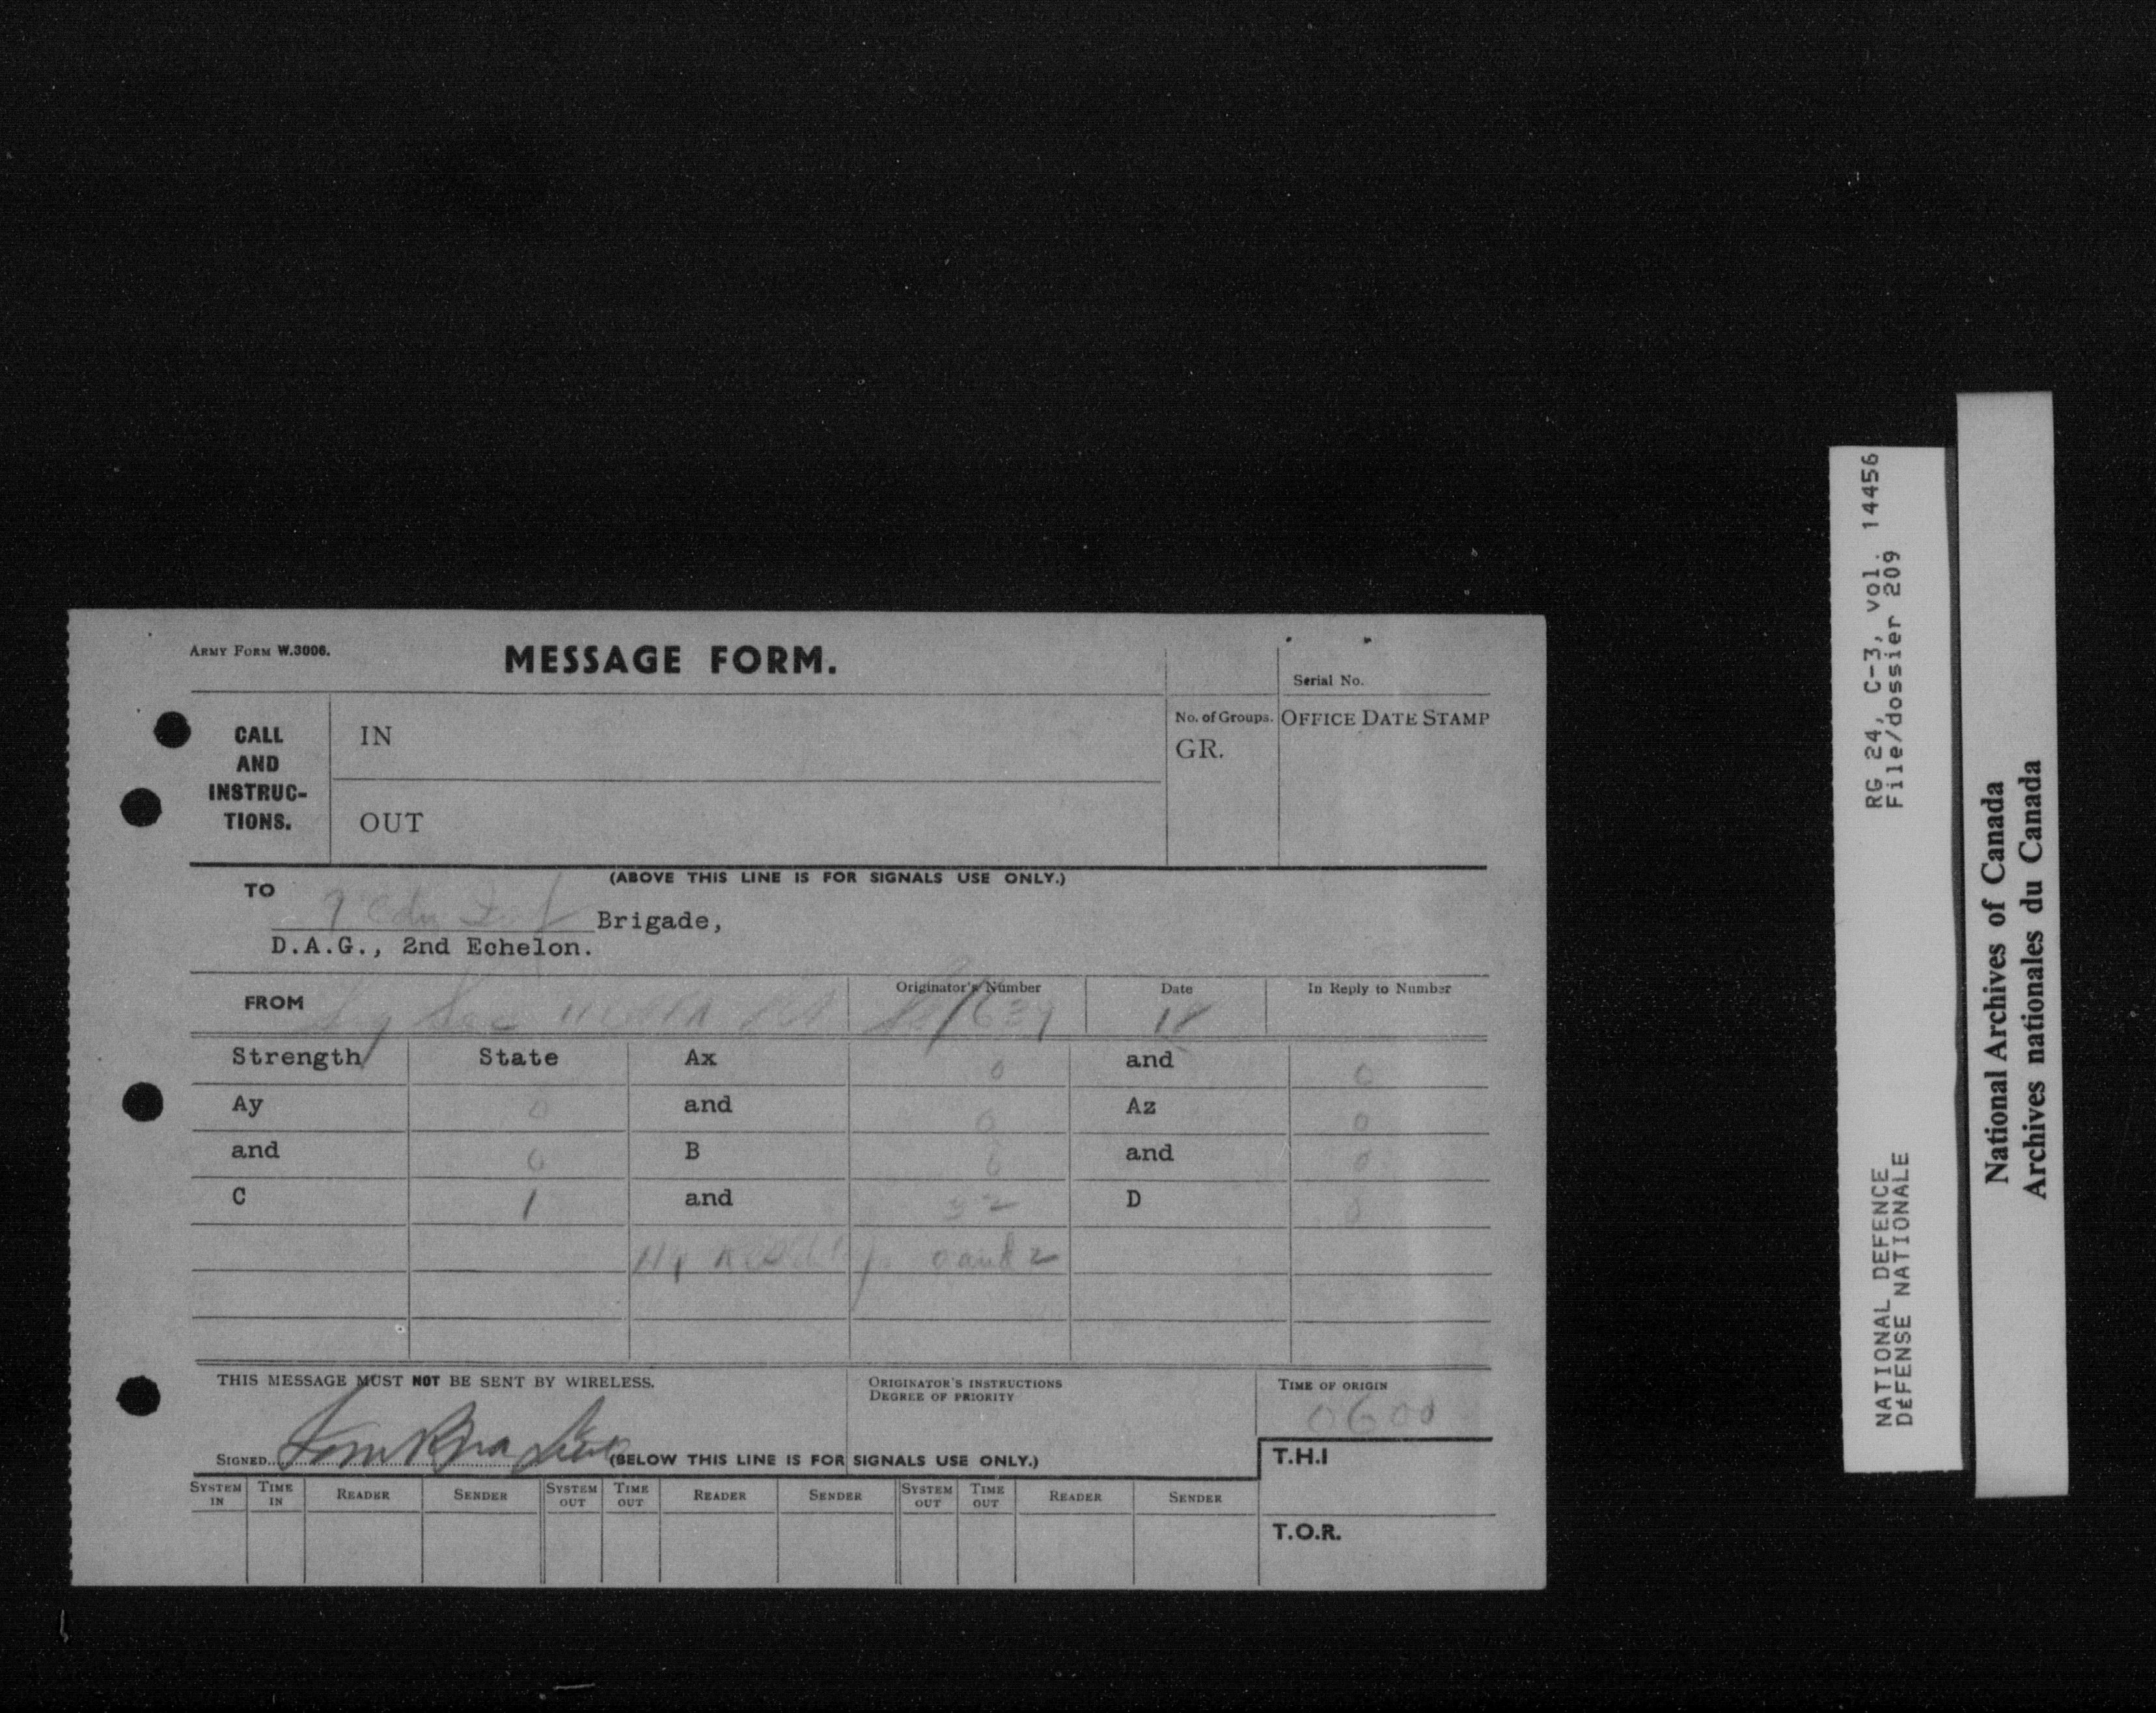 ARMY FORM W.3006.
MESSAGE FORM.
Serial No.
CALL
AND
INSTRUC-
TIONS.
IN
OUT
No. of Groups.
GR.
OFFICE DATE STAMP
(ABOVE THIS LINE IS FOR SIGNALS USE ONLY.)
TO
Brigade,
D.A.G., 2nd Echelon.
FROM
Originator's Number
Date
In Reply to Number
18
Strength State Ax 0 and 0
Ay 0 and 0 Az 0
and 0 B and 0
C 1 and 32 D 0
0 and 2
THIS MESSAGE MUST NOT BE SENT BY WIRELESS.
ORIGINATOR'S INSTRUCTIONS
DEGREE OF PRIORITY
TIME OF ORIGIN
0600
SIGNED
(BELOW THIS LINE IS FOR SIGNALS USE ONLY.)
T.H.I
SYSTEM IN
TIME IN
READER
SENDER
SYSTEM OUT
TIME OUT
READER
SENDER
SYSTEM OUT
TIME OUT
READER
SENDER
T.O.R.
RG 24, C-3, vol. 14456
File/dossier 209
NATIONAL DEFENCE
DÉFENSE NATIONALE
National Archives of Canada
Archives nationales du Canada